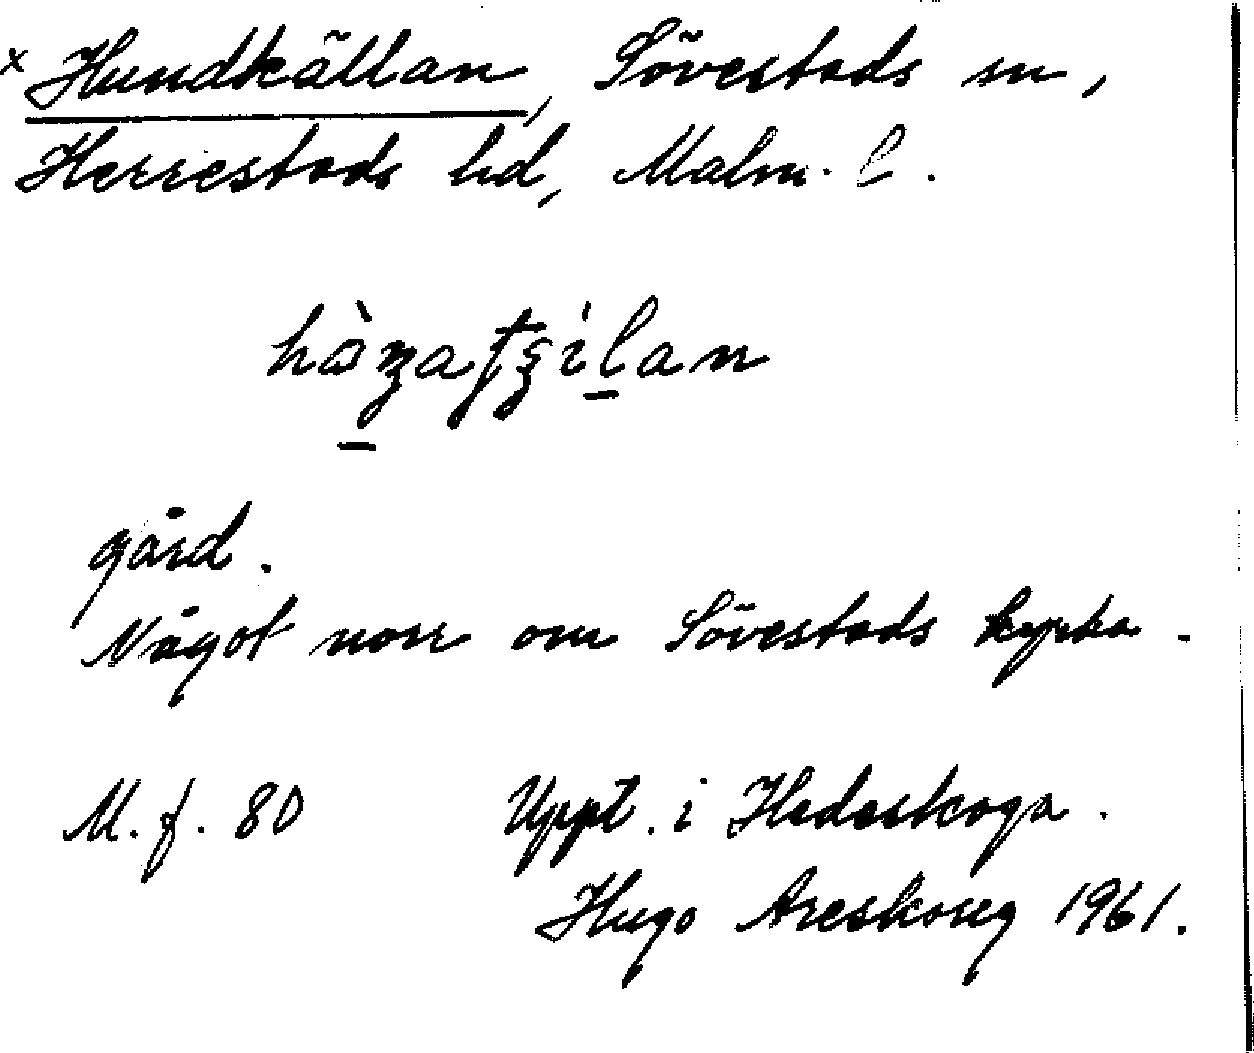 x Hundkällan, Sövestads sn,
Herrestads hd, Malm. l.
gård.
Något norr om Sövestads kyrka.
M. f. 80 Uppt. i Hedeskoga.
Hugo Areskoug 1961.